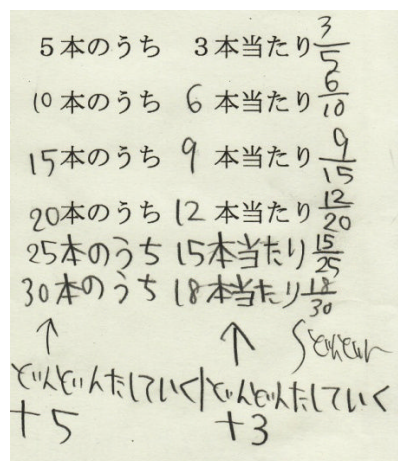 5本のうち 3本当たり 3/5
10本のうち 6本当たり 6/10
15本のうち 9本当たり 9/15
20本のうち 12本当たり 12/20
25本のうち 15本当たり 15/25
30本のうち 18本当たり 18/30
どんどんたしていく|どんどんたしていく
+5 +3